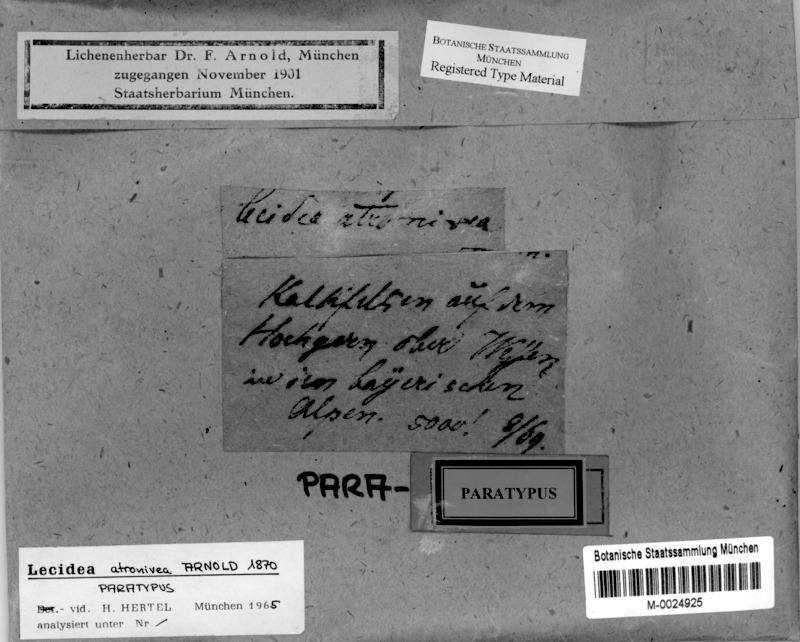 Lichenenherbar Dr. F. Arnold, München
zugegangen November 1901
Staatsherbarium München.
BOTANISCHE STAATSSAMMLUNG
MÜNCHEN
Registered Type Material
Lecidea atronivea
Kalkfelsen auf dem
Hochgern ober
in den bayerischen
Alpen. 5000! 8/69.
PARA-
PARATYPUS
Lecidea atronivea ARNOLD 1870
PARATYPUS
Det.- vid. H. HERTEL München 1965
analysiert unter Nr /
Botanische Staatssammlung München
M-0024925